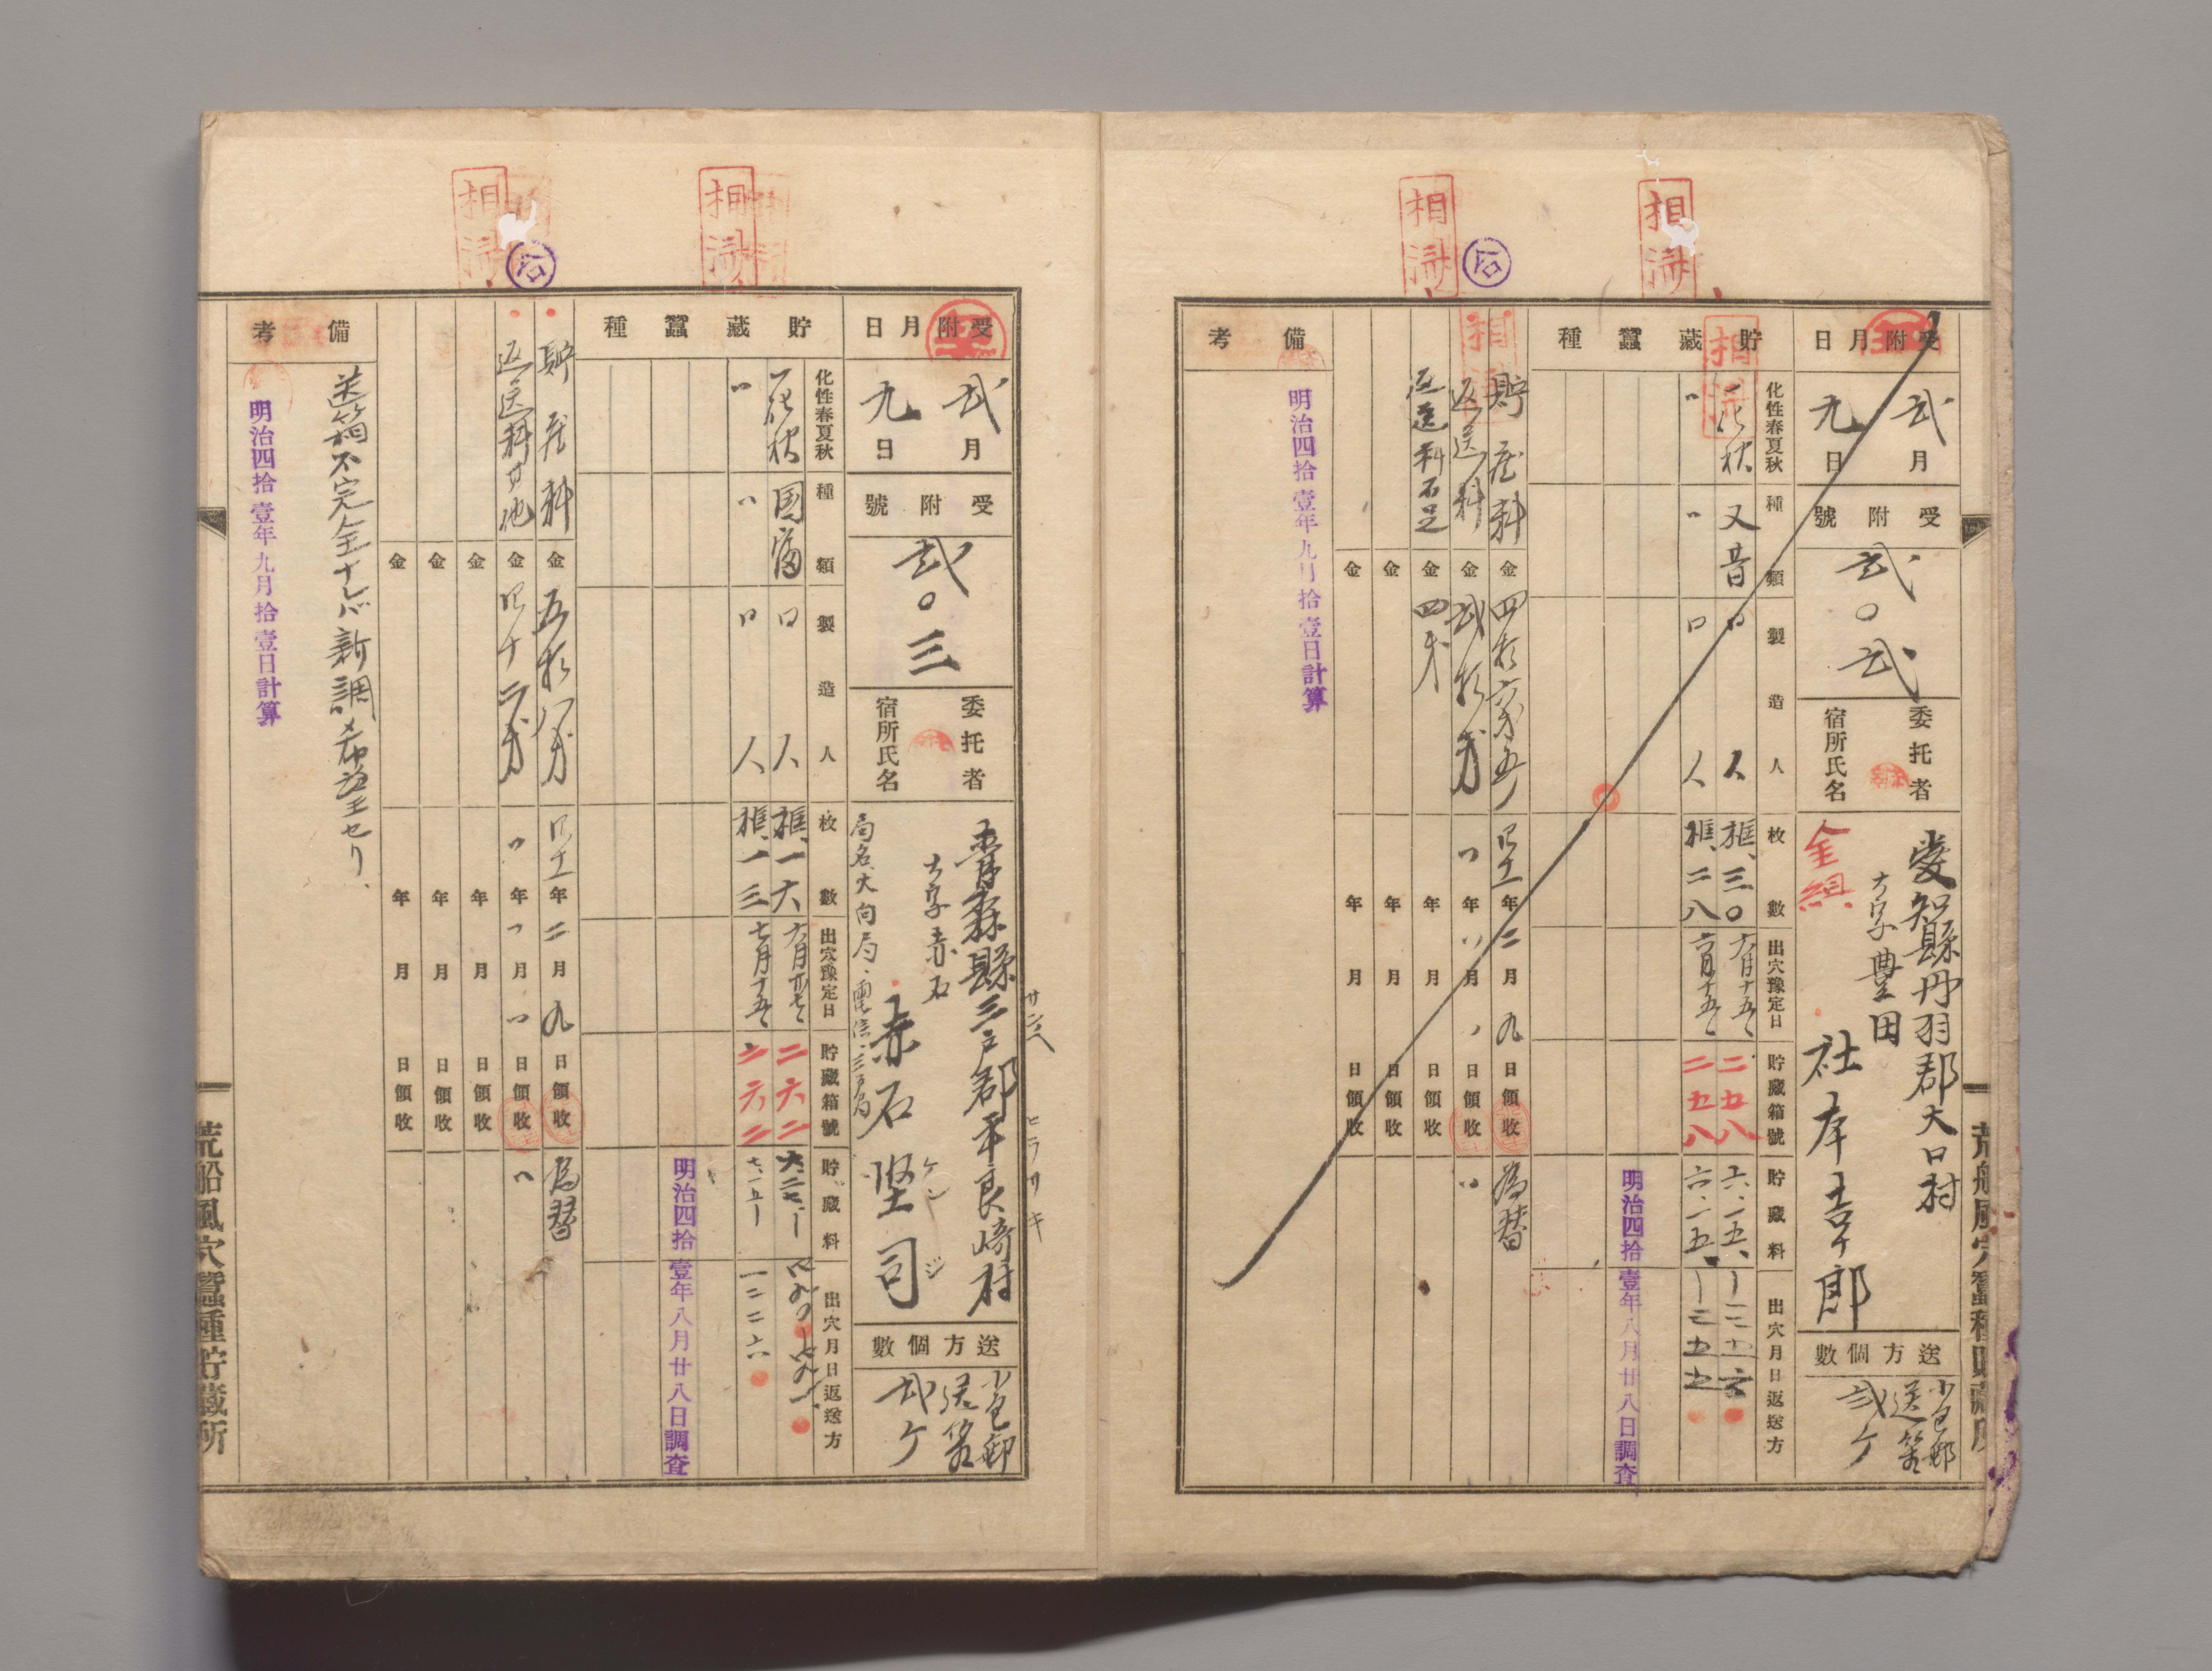 相済
相済
受附月日
弐月
九日
受附號
弐〇弐
委托者
宿所氏名
愛知縣丹羽郡大口村
大字豊田
社本喜郎
金組
送方個數
小包郵
送箱
弐ケ
貯藏蠶種
化性春夏秋
種類
製造人
枚數
出穴豫定日
貯藏箱號
貯藏料
出穴月日返送方
一化秋
又昔
〃
人
框、三〇
六月十五、
二五八
六、一五、
〃
〃
〃
人
框、二八
六月十五、
二五八
六、一五、
明治四拾壹年八月廿八日調査
相済
相済
貯蔵料
金
四拾六戋五
四十一年二月九日領收
為替
返送料
金
弐拾戋
〃年〃月〃日領收
〃
返送料不足
金
四戋
年月日領收
金
年月日領收
金
年月日領收
備考
明治四拾壹年九月拾壹日計算
荒船風穴蠶種貯藏所
相済
相済
受附月日
弐月
九日
受附號
弐〇三
委托者
宿所氏名
サンノヘ
ヒラサキ
青森縣三戸郡平良崎村
大字赤石
赤石堅司
ケンジ
局名、大向局、電信、三戸局
送方個數
小包郵
送箱
弐ケ
貯藏蠶種
化性春夏秋
種類
製造人
枚數
出穴豫定日
貯藏箱號
貯藏料
出穴月日返送方
一化秋
国富
〃
人
框、一六
六月廿七、
二六二
六、二七、
〃
〃
〃
人
框、一三
七月十五、
二六二
七、一五
一二二六
明治四拾壹年八月廿八日調査
貯蔵料
金
五拾八戋
四十一年二月九日領收
為替
返送料其他
金
四十二戋
〃年〃月〃日領收
〃
金
年月日領收
金
年月日領收
金
年月日領收
備考
送箱不完全ナレバ新調ヲ希望セリ、
明治四拾壹年九月拾壹日計算
荒船風穴蠶種貯藏所